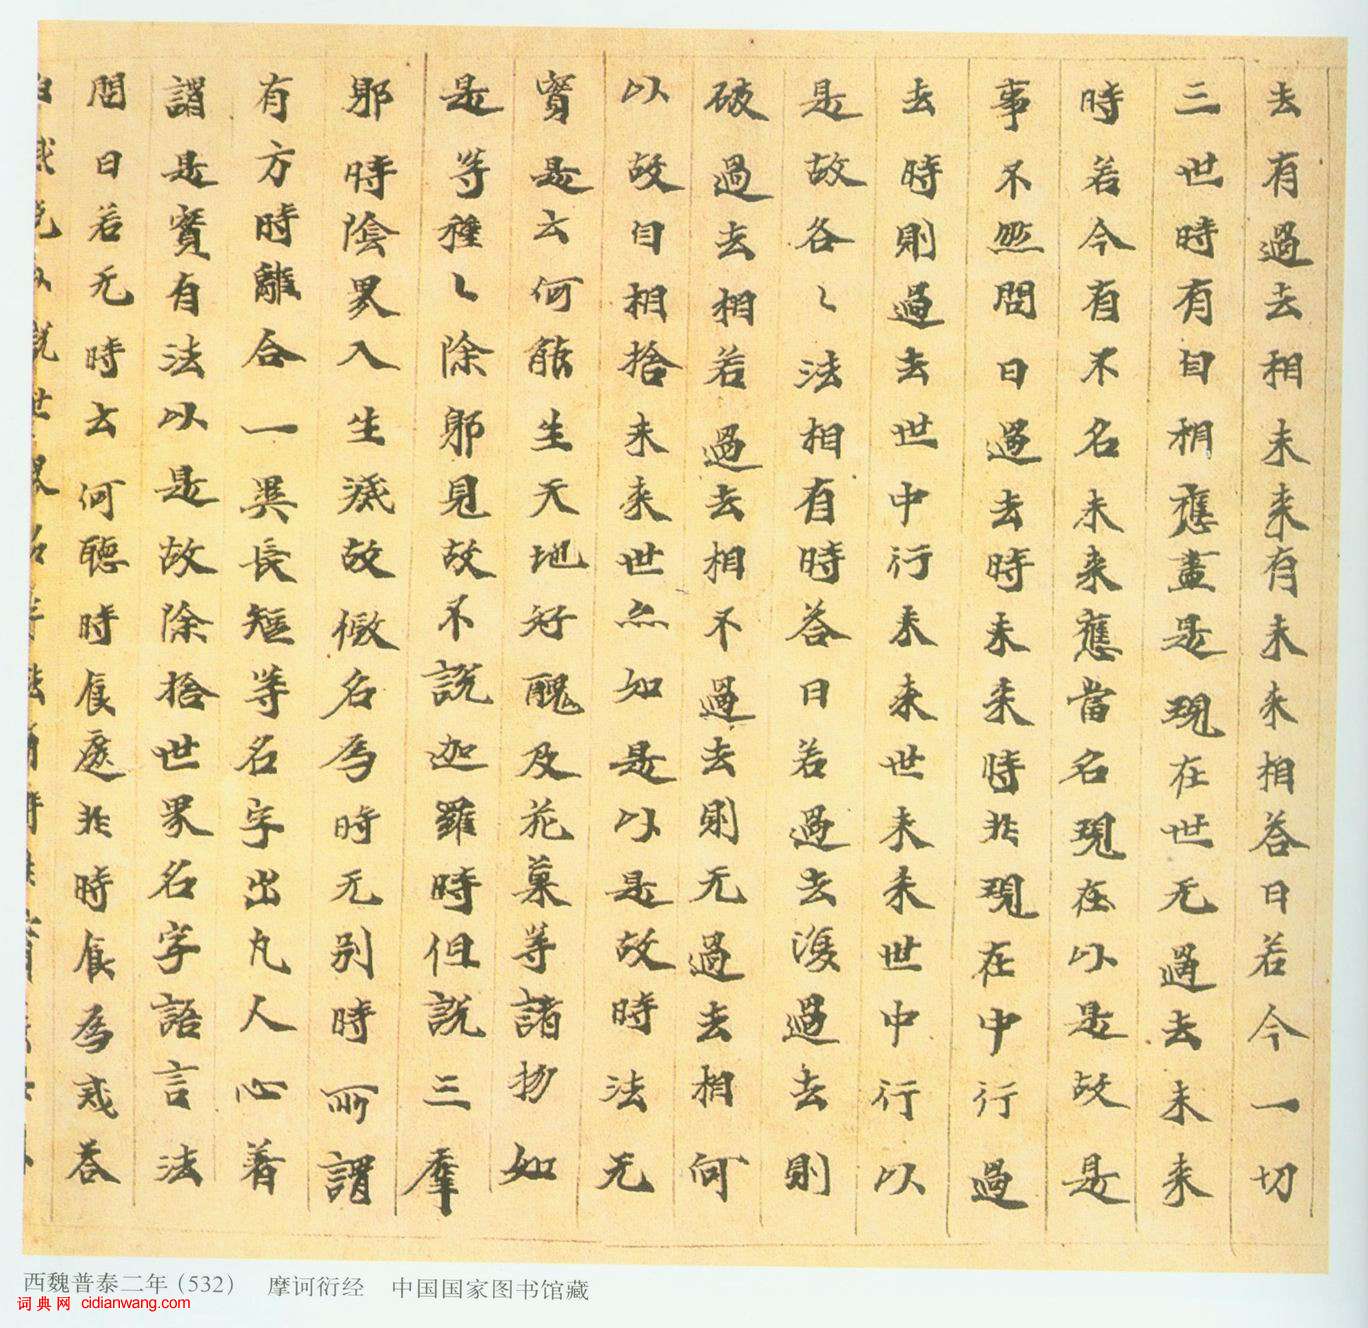 去有過去相未来有未来相荅曰若今一切
三世時有自相應盡是現在世无過去未来
時若今有不名未来應當名現在以是故是
事不然問曰過去時未来時非現在中行過
去時則過去世中行未来世未来世中行以
是故各〻法相有時荅曰若過去復過去則
破過去相若過去相不過去則无過去相何
以故自相捨未来世亦如是以是故時法无
實是云何能生天地好醜及花菓等諸物如
是等種〻除邪見故不說迦羅時但說三摩
耶時陰界入生滅故假名為時无别時所謂
有方時離合一異長短等名字出凡人心着
謂是實有法以是故除捨世界名字語言法
問曰若无時云何聽時食遮非時食為戒荅
西魏普泰二年(532) 摩诃衍经 中国国家图书馆藏
词典网 cidianwang.com